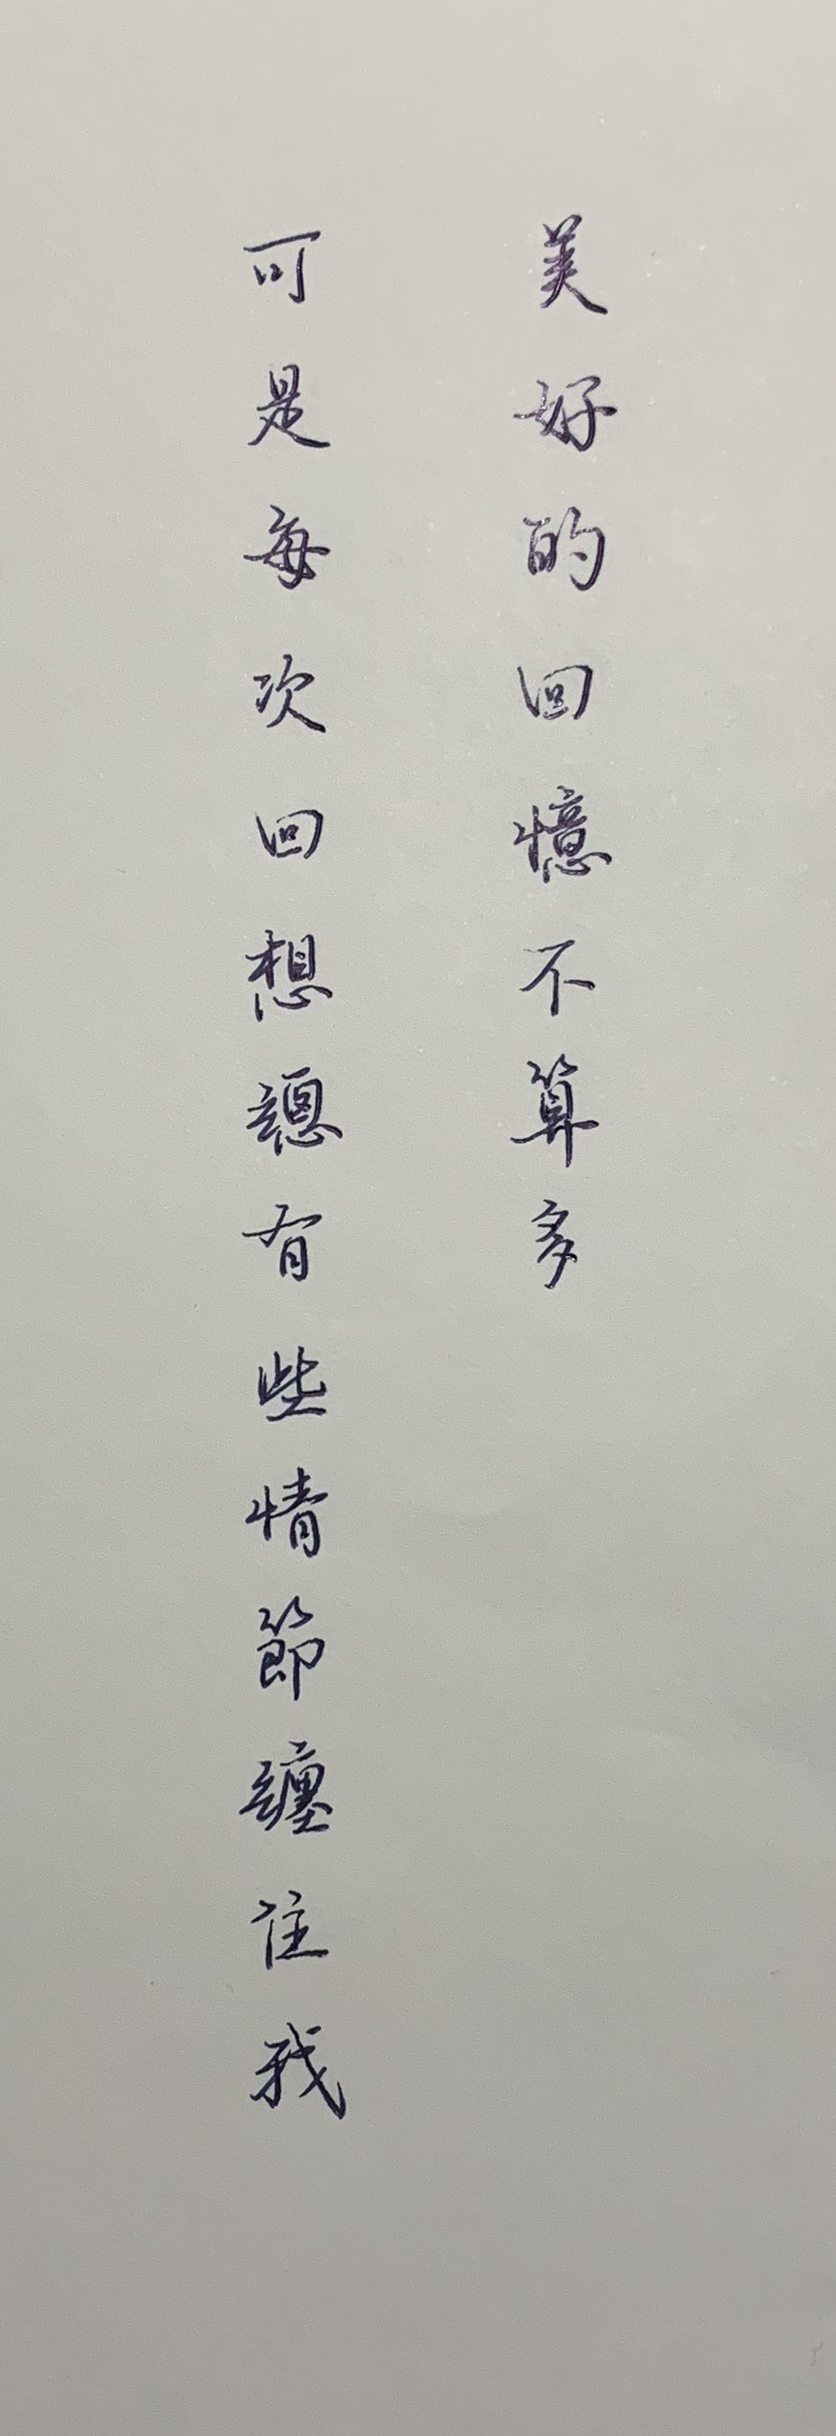 美好的回憶不算多
可是每次回想總有些情節纏住我